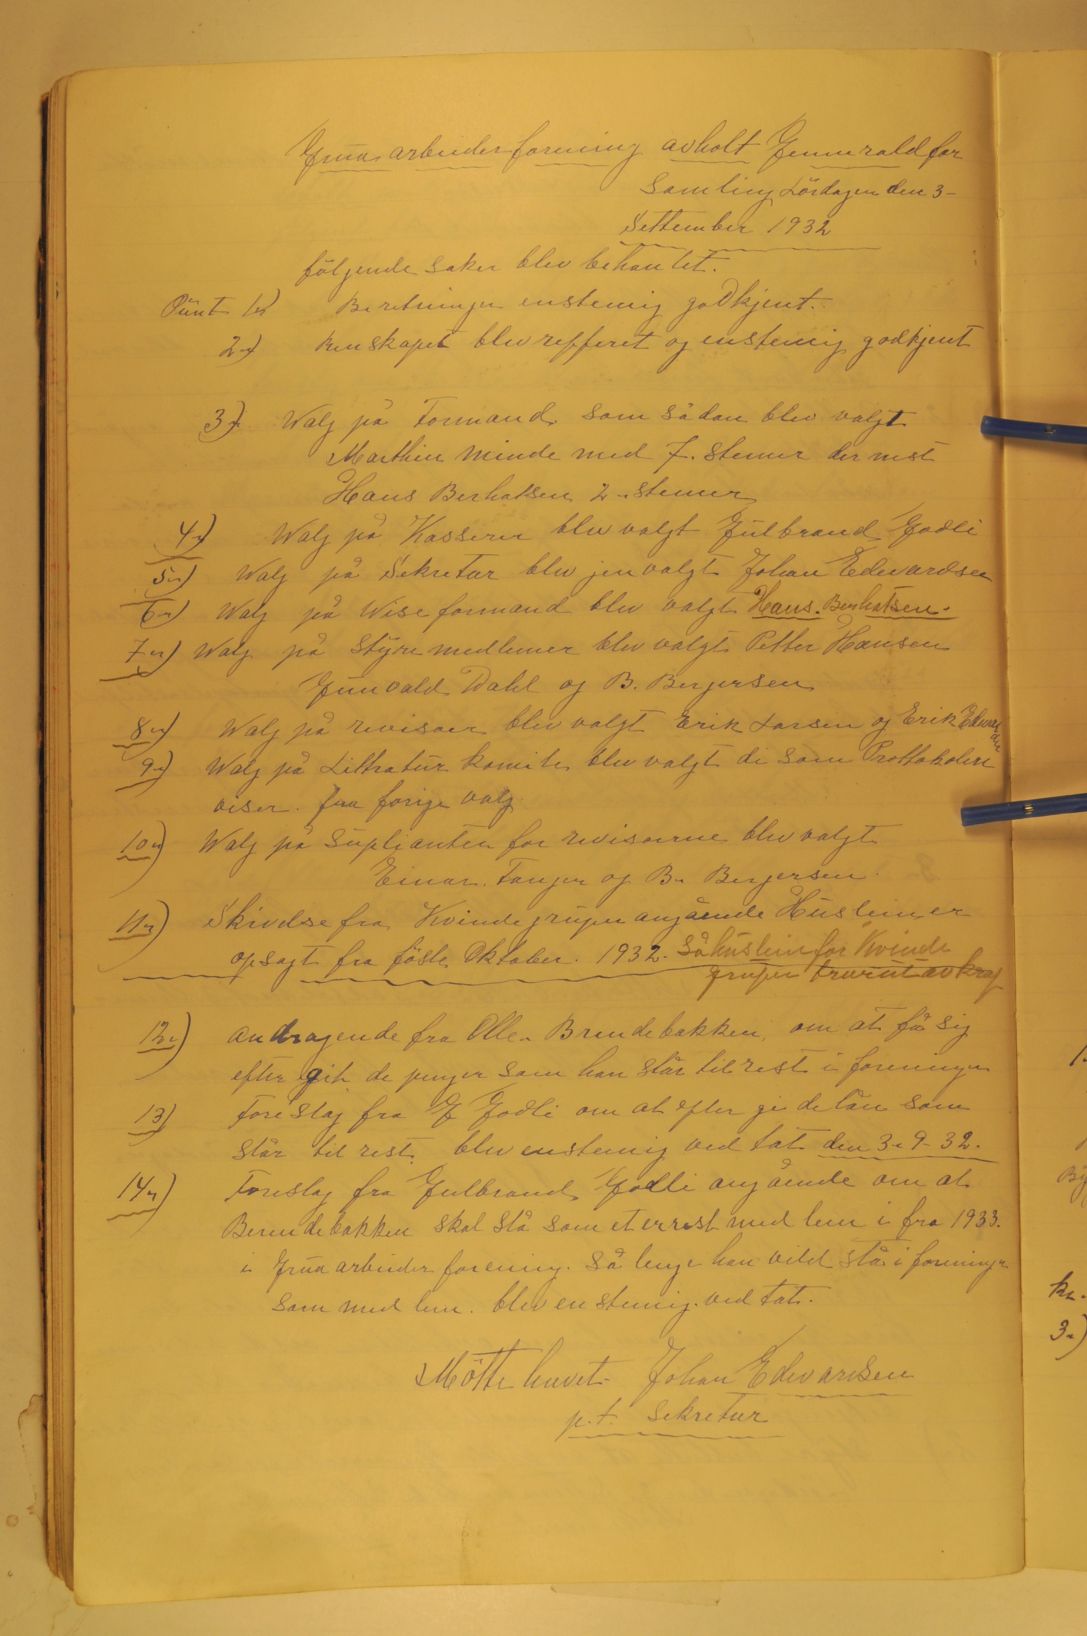 Grua arbeider forening avholt Jennerald for
Samling Lördagen den 3-
Settember 1932
fölgende saker blev behantet.
Punt 1) Beretningen enstemig godkjent.
2) Renskapet blev refferet og enstemig godkjent
3) Walg på Formand som sådan blev valgt
Marthin Minde med 7. stemer der nest
Hans Berhatsen 2. stemer
4) Walg på Kasserer blev valgt Gulbrand Godli
5) Walg på Sekretær blev jenvalgt Johan Edevardsen
6) Walg på Wiseformand blev valgt Hans. Berhatsen.
7) Walg på Styre medlemer blev valgt Petter Hansen
Gunvald Dahl og B. Bergersen
8) Walg på revisoer blev valgt Erik Larsen og Erik Edevardsen
9) Walg på Littratur komite blev valgt de som Prottokolen
viser. fra forige valg
10) Walg på Suplianter for revisoerne blev valgt
Einar. Tanger og B. Bergersen.
11) Skrivelse fra Kvindegrupen angående Husleien er
opsagt fra föste Oktober. 1932. Så husleie for Kvinde
grupen trær ut av kraf
12) andragende fra Olle. Brendebakken, om at få sig
efter git de penger som han står til rest i foreningen
13) Forestag fra G Godli om at efter gi de lån som
står til rest. blev enstemig ved tat den 3-9-32.
14) Forestag fra Gulbrand Godli angående om at
Berendebakken skal stå som et erest med lem i fra 1933.
i Grua arbeider forening. Så lenge han vild stå i foreningen
som med lem. blev en stemig. ved tat.
Mötte hevet. Johan Edevardsen
p.t. Sekretær
kr.
3.)